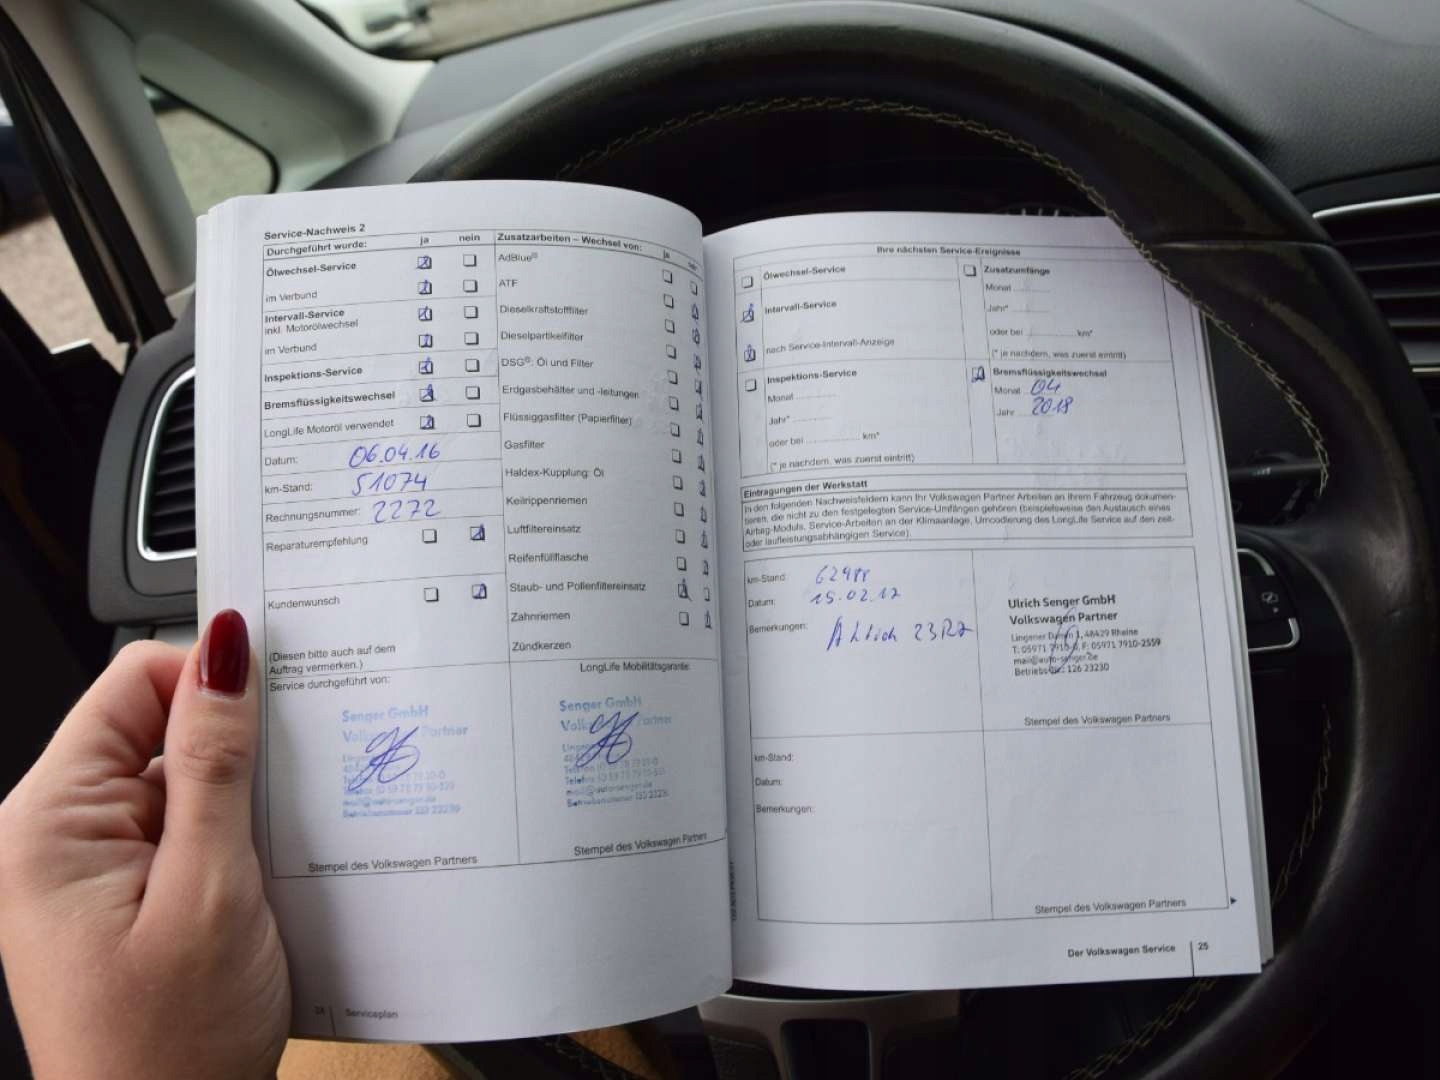 Service-Nachweis 2
Durchgeführt wurde: ja nein
Ölwechsel-Service
im Verbund
Intervall-Service
inkl. Motorölwechsel
im Verbund
Inspektions-Service
Bremsflüssigkeitswechsel
LongLife Motoröl verwendet
Datum: 06.04.16
km-Stand: 51074
Rechnungsnummer: 2272
Reparaturempfehlung
Kundenwunsch
(Diesen bitte auch auf dem
Auftrag vermerken.)
Service durchgeführt von:
Senger GmbH
Volkswagen Partner
mail@auto-senger.de
Stempel des Volkswagen Partners
Zusatzarbeiten – Wechsel von: ja
AdBlue®
ATF
Dieselkraftstofffilter
Dieselpartikelfilter
DSG®: Öl und Filter
Erdgasbehälter und -leitungen
Flüssiggasfilter (Papierfilter)
Gasfilter
Haldex-Kupplung: Öl
Keilrippenriemen
Luftfiltereinsatz
Reifenfüllflasche
Staub- und Pollenfiltereinsatz
Zahnriemen
Zündkerzen
LongLife Mobilitätsgarantie:
Senger GmbH
Stempel des Volkswagen Partners
Serviceplan
Ihre nächsten Service-Ereignisse
Ölwechsel-Service
Intervall-Service
nach Service-Intervall-Anzeige
Inspektions-Service
Monat ............
Jahr* ............
oder bei ................ km*
(* je nachdem, was zuerst eintritt)
Zusatzumfänge
Monat ............
Jahr* ............
oder bei ................ km*
(* je nachdem, was zuerst eintritt)
Bremsflüssigkeitswechsel
Monat 04
Jahr 2018
Eintragungen der Werkstatt
In den folgenden Nachweisfeldern kann Ihr Volkswagen Partner Arbeiten an Ihrem Fahrzeug dokumen-
tieren, die nicht zu den festgelegten Service-Umfängen gehören (beispielsweise den Austausch eines
Airbag-Moduls, Service-Arbeiten an der Klimaanlage, Umcodierung des LongLife Service auf den zeit-
oder laufleistungsabhängigen Service).
km-Stand:
Datum: 15.02.17
Bemerkungen: 23R7
Ulrich Senger GmbH
Volkswagen Partner
Lingener Damm 1, 48429 Rheine
T: 05971 7910-0, F: 05971 7910-2559
mail@auto-senger.de
126 23230
Stempel des Volkswagen Partners
km-Stand:
Datum:
Bemerkungen:
Stempel des Volkswagen Partners
Der Volkswagen Service 25